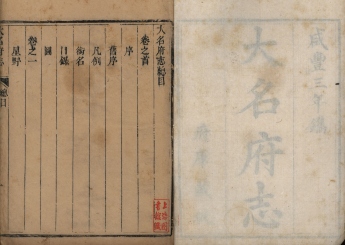 咸豐三年鐫
大名府志
大名府志總目
卷之首
序
舊序
凡例
銜名
目錄
圖
卷之一
星野
大名府志
總目